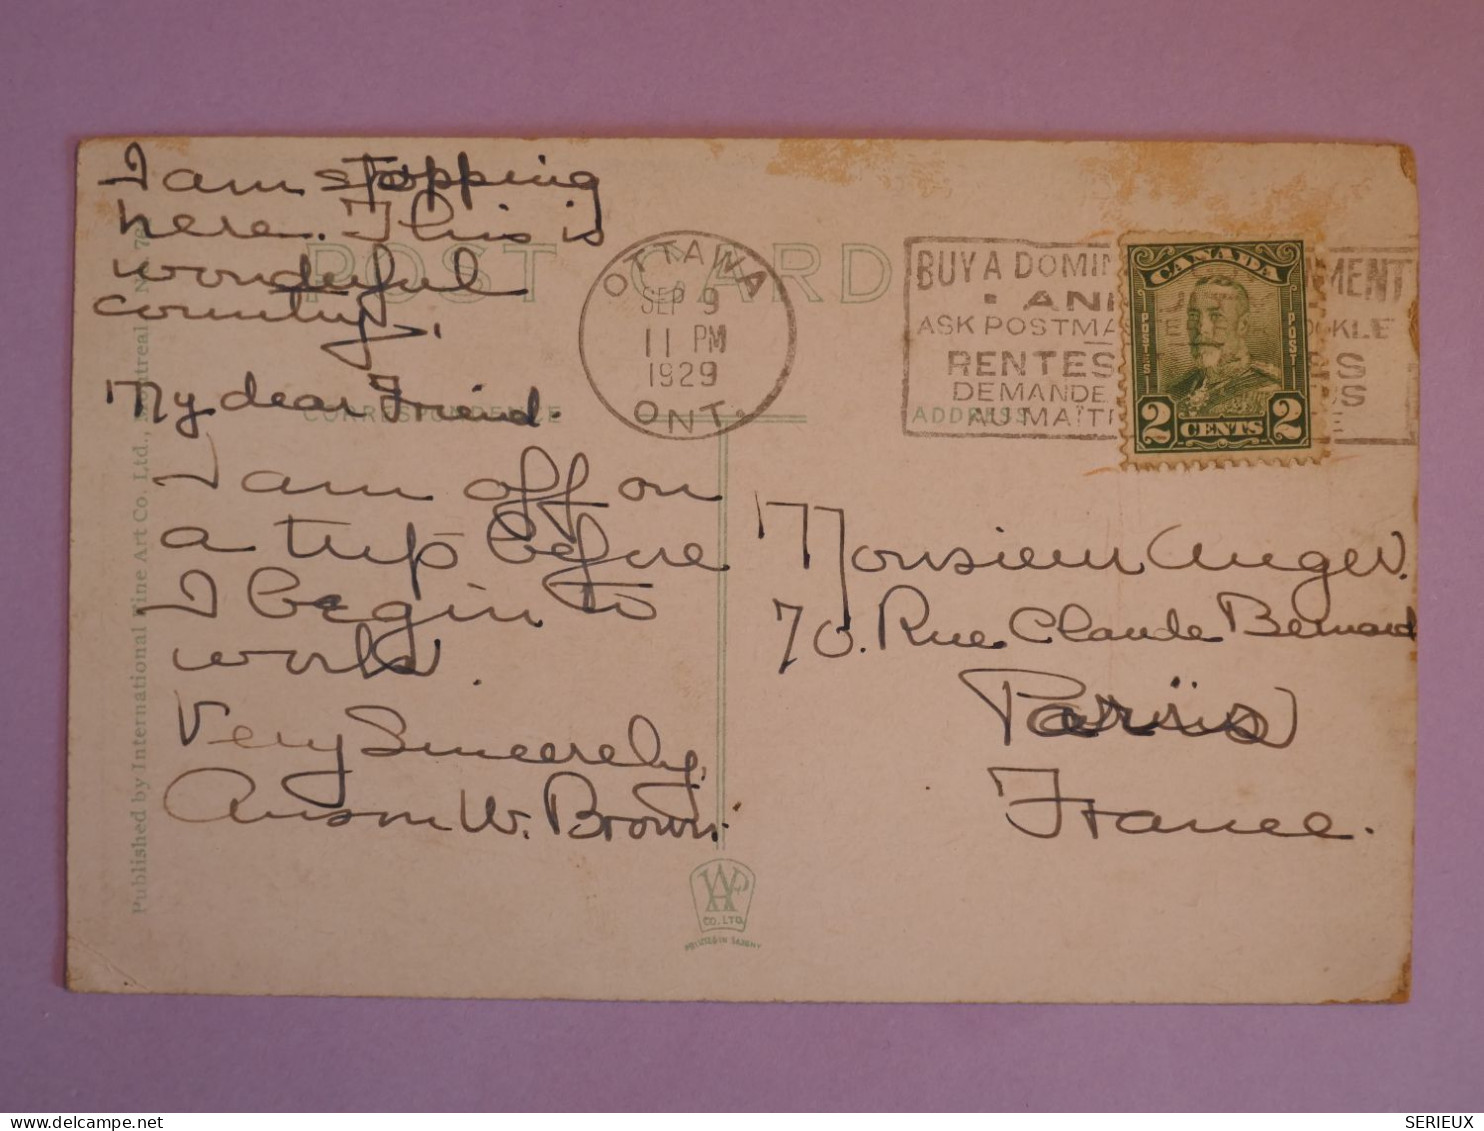 I am stopping
here. This is
wonderful
country.
My dear Friend.
I am off on
a trip before
I begin to
work.
Very Sincerely,
Anson W. Brown.
POST CARD
CORRESPONDENCE
ADDRESS
Published by International Fine Art Co. Ltd., Montreal
OTTAWA
SEP 9
11 PM
1929
ONT.
BUY A DOMIN MENT
ASK POSTMA
RENTES
DEMANDE
AU MAÎT
CANADA
POSTES
POST
2 CENTS 2
Monsieur Auger.
70. Rue Claude Bernard
Paris
France.
CO. LTD.
PRINTED IN SAXONY
SERIEUX
www.delcampe.net